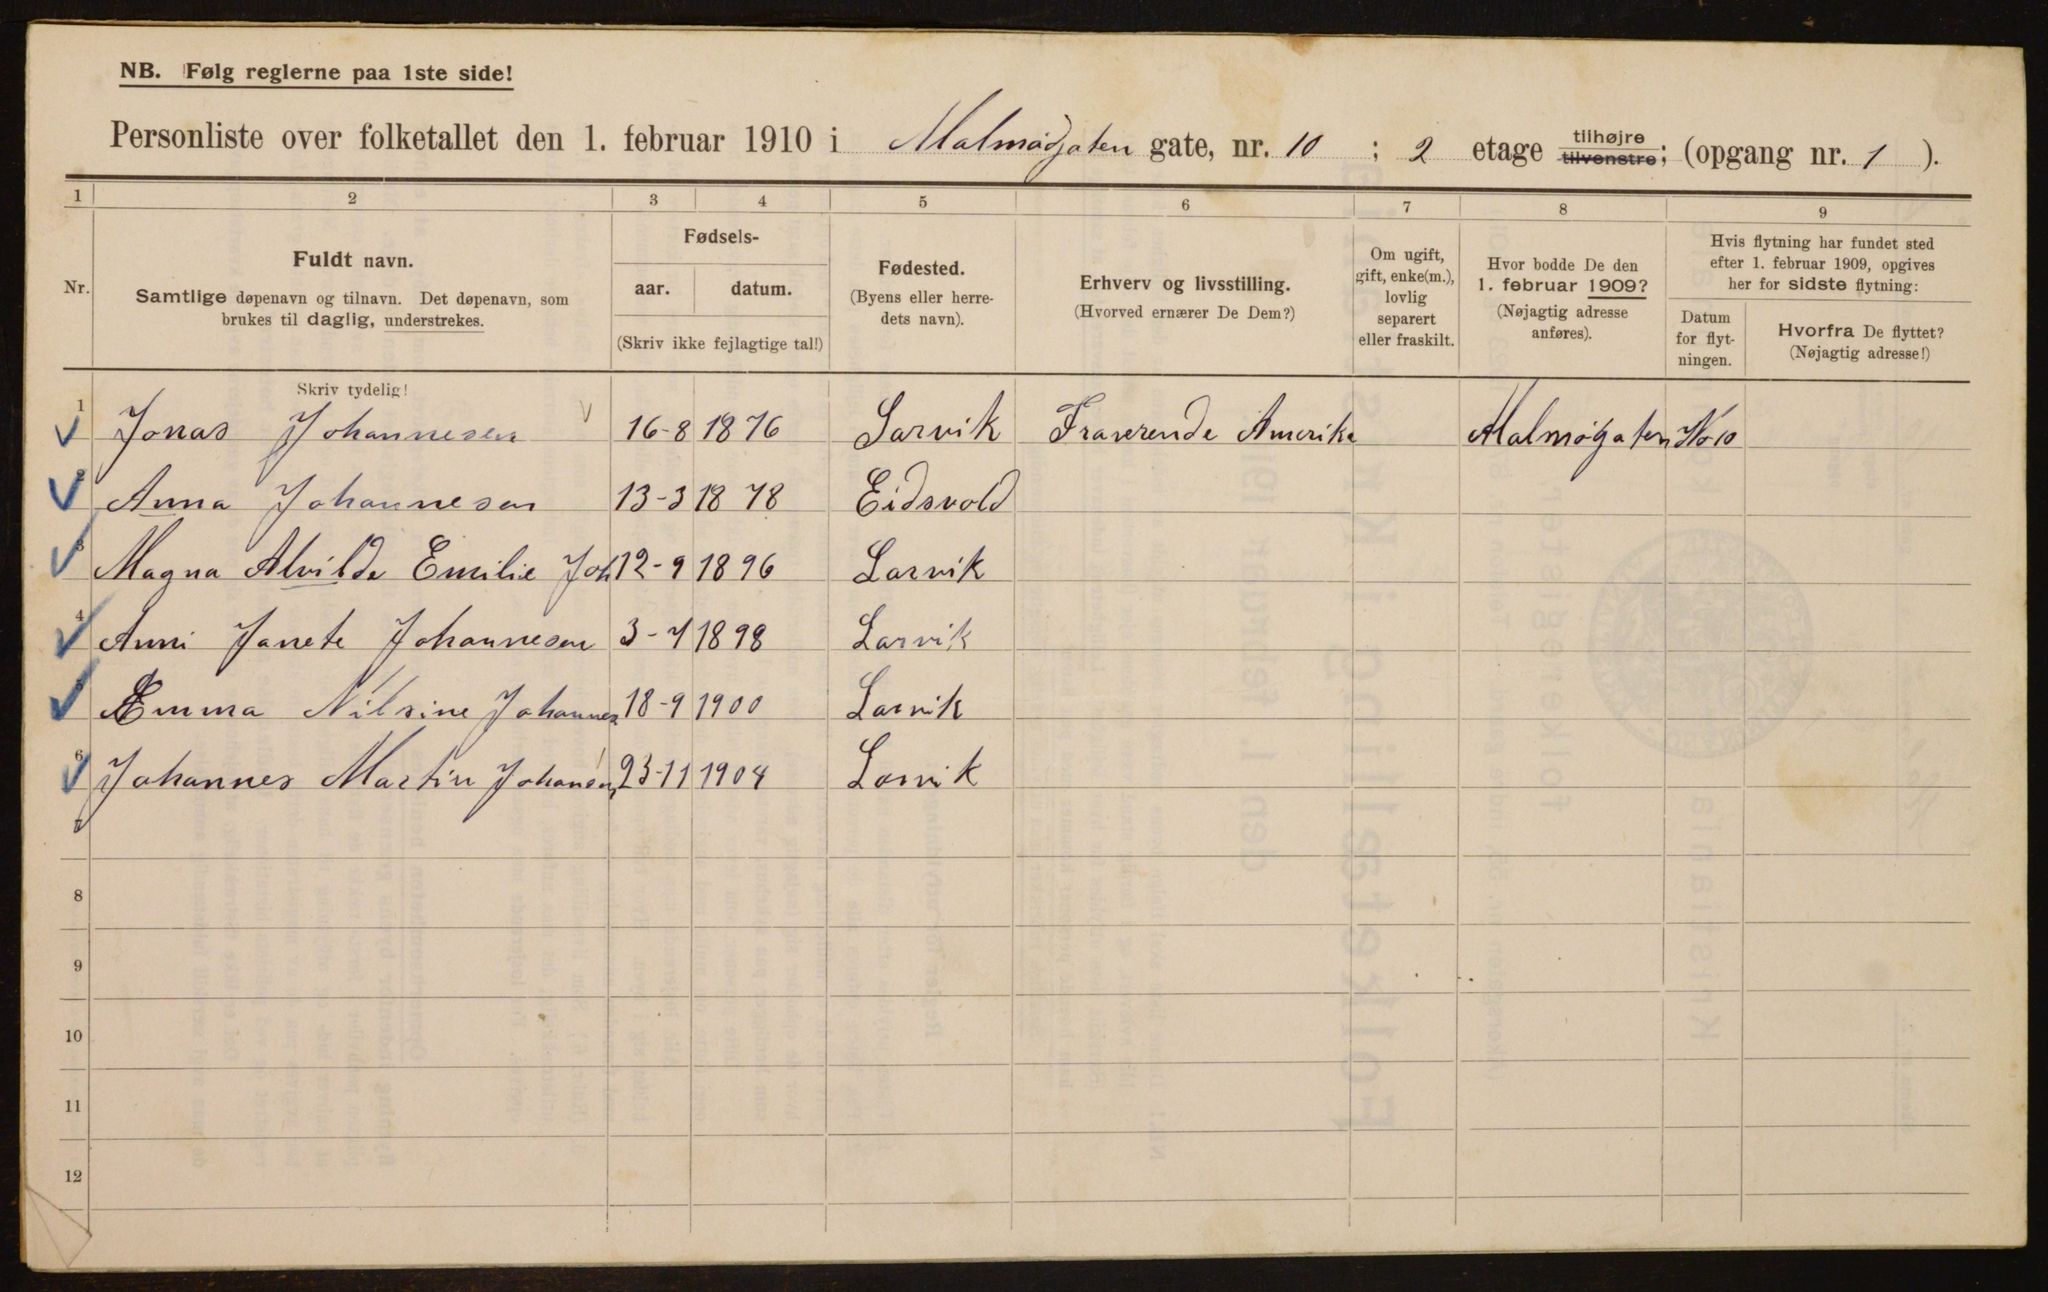 NB. Følg reglerne paa 1ste side!
Personliste over folketallet den 1. februar 1910 i Malmøgaten gate, nr. 10 ; 2 etage tilhøjre tilvenstre; (opgang nr. 1 ).
1 2 3 4 5 6 7 8 9
Nr.
Fuldt navn.
Samtlige døpenavn og tilnavn. Det døpenavn, som
brukes til daglig, understrekes.
Fødsels-
aar. datum.
(Skriv ikke fejlagtige tal!)
Fødested.
(Byens eller herre-
dets navn).
Erhverv og livsstilling.
(Hvorved ernærer De Dem?)
Om ugift,
gift, enke(m.),
lovlig
separert
eller fraskilt.
Hvor bodde De den
1. februar 1909?
(Nøjagtig adresse
anføres).
Hvis flytning har fundet sted
efter 1. februar 1909, opgives
her for sidste flytning:
Datum
for flyt-
ningen.
Hvorfra De flyttet?
(Nøjagtig adresse!)
Skriv tydelig!
1 Jonas Johannesen 16-8 1876 Larvik Fraverende Amerika Malmøgaten No 10
2 Anna Johannesen 13-3 1878 Eidsvold
3 Magna Alvilde Emilie Joh 12-9 1896 Larvik
4 Anni Janete Johannesen 3-7 1898 Larvik
5 Emma Nilsine Johannes 18-9 1900 Larvik
6 Johannes Martin Johansen 23-11 1904 Larvik
7
8
9
10
11
12